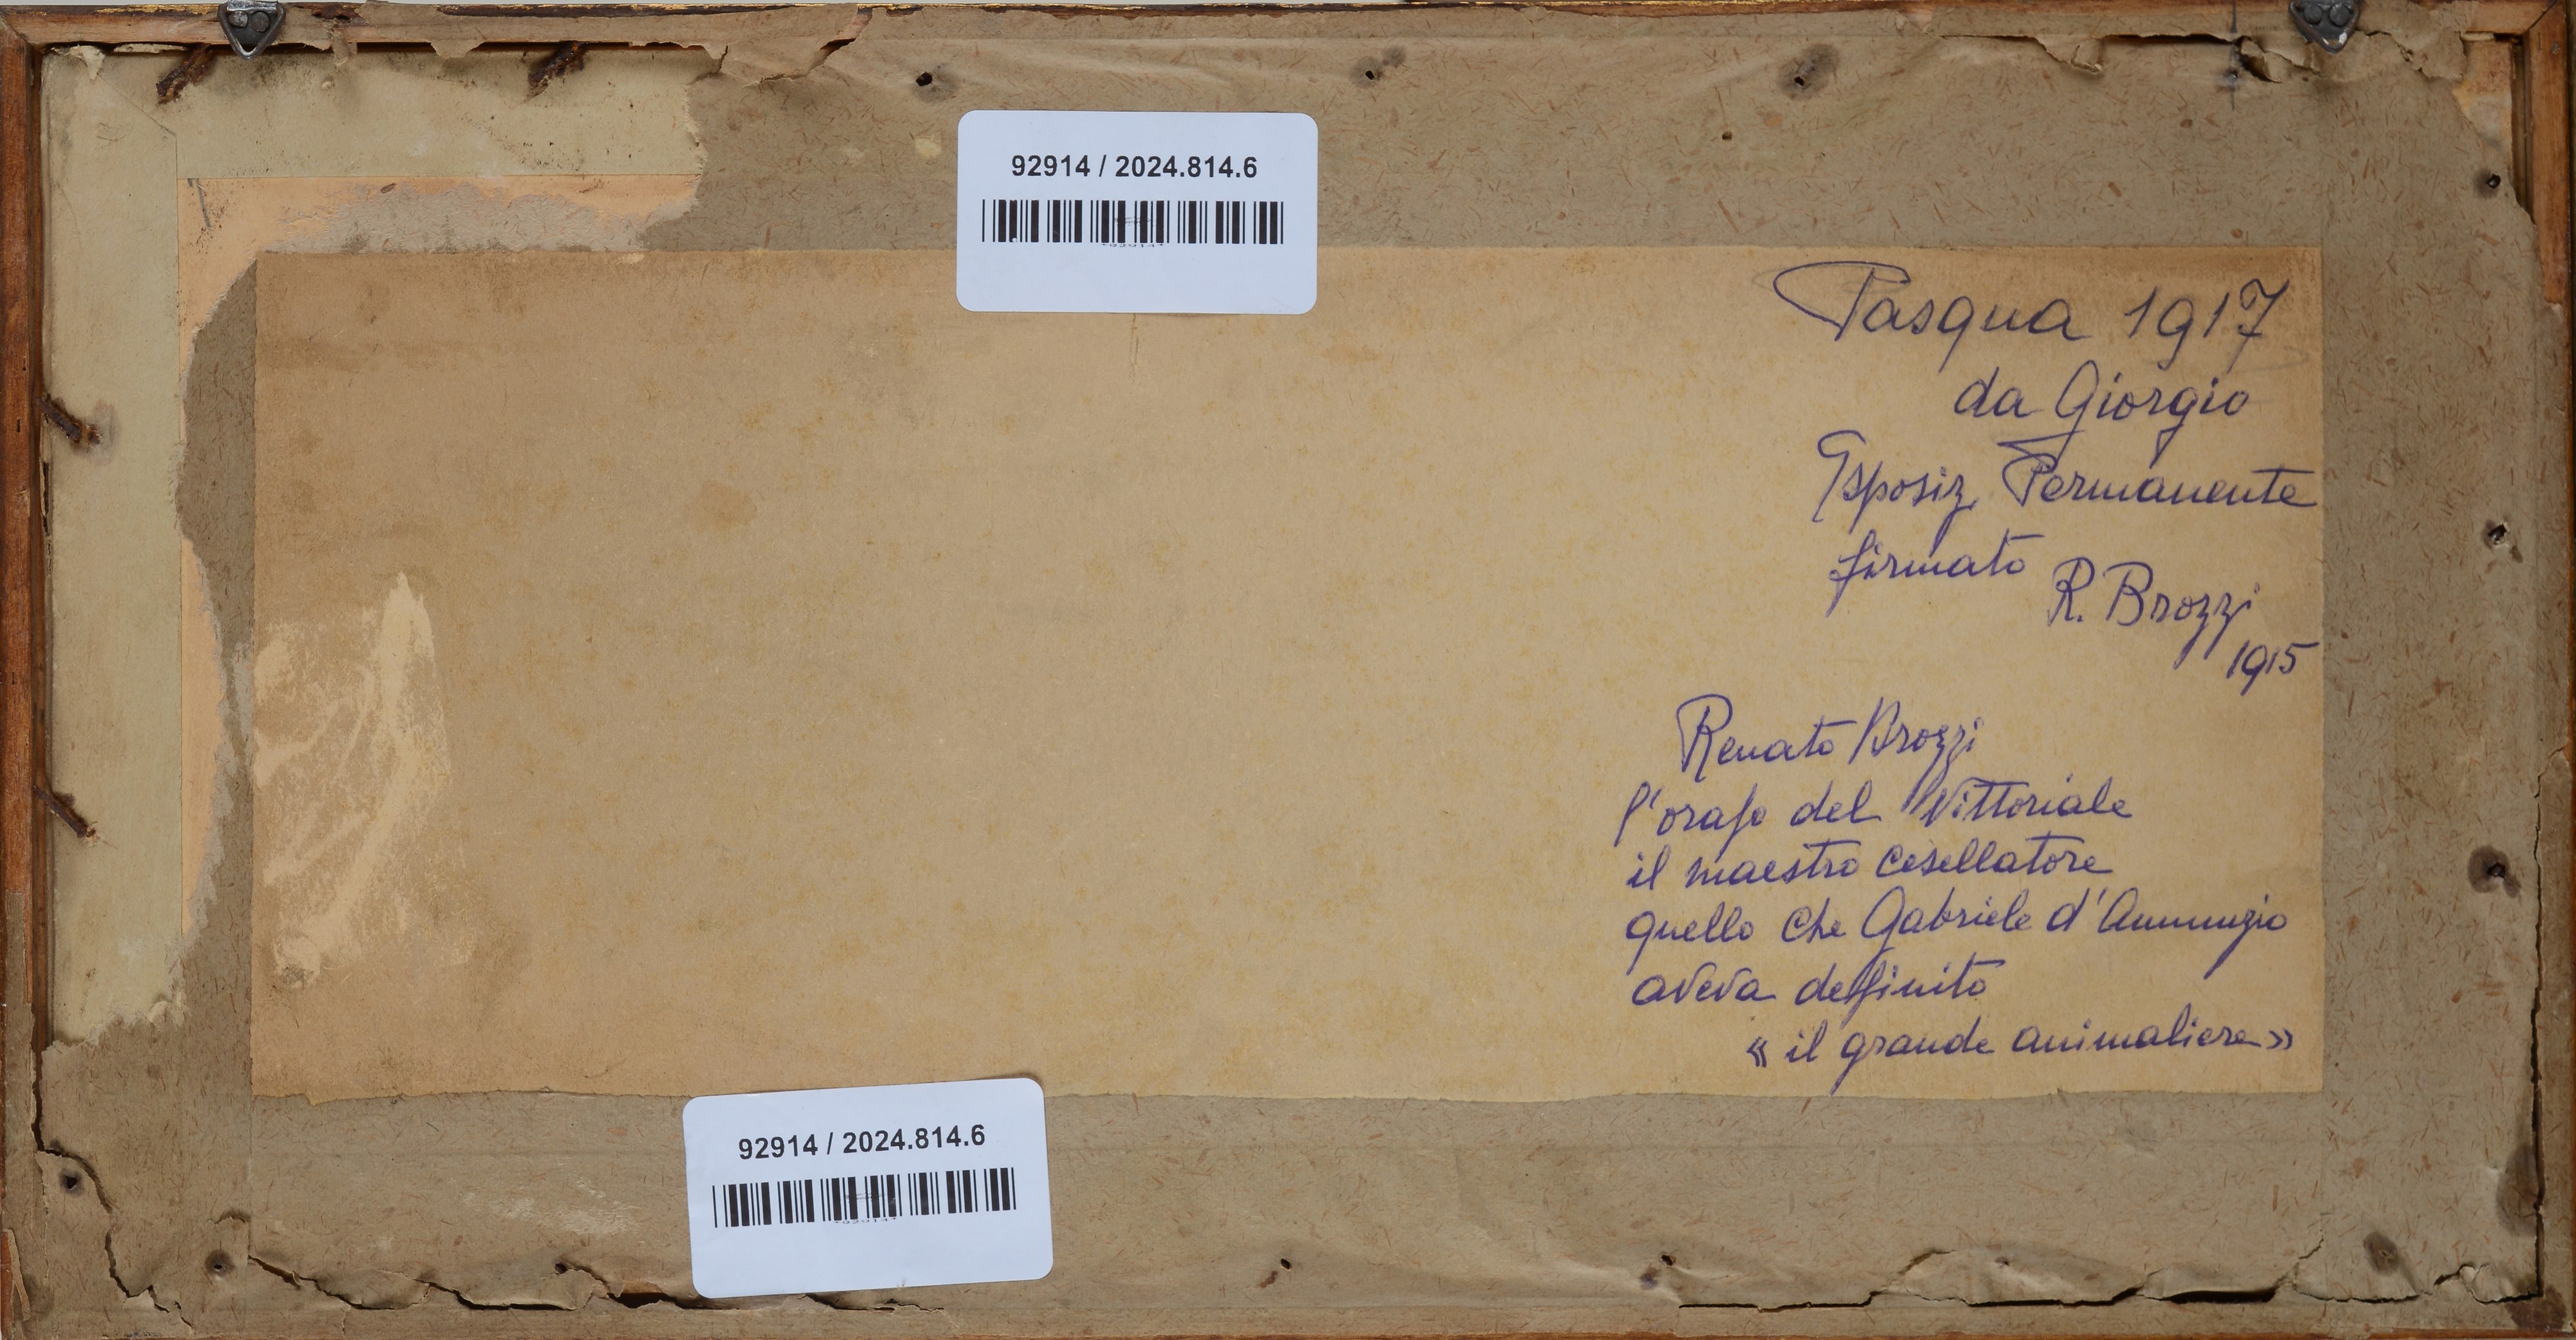 92914 / 2024.814.6
Pasqua 1917
da Giorgio
Esposiz. Permanente
firmato
R. Brozzi
1915
Renato Brozzi
l'orafo del Vittoriale
il maestro cesellatore
quello che Gabriele d'Annunzio
aveva definito
« il grande animaliere »
92914 / 2024.814.6